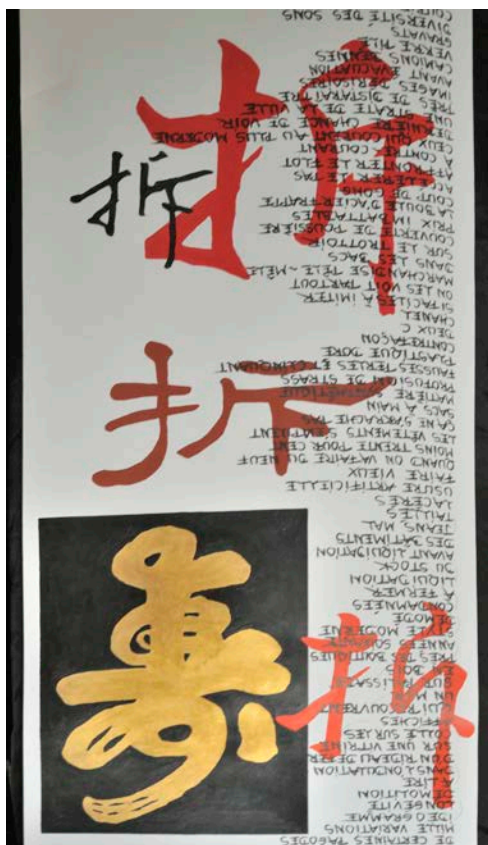 拆
拆
拆
壽
拆
DE CERTAINES PAGODES
MILLE VARIATIONS
IDÉOGRAMME
LONGÉVITÉ
DÉMOLITION
À LIRE
DANS L'ONDULATION
D'UN RIDEAU DE FER
SUR UNE VITRINE
COLLÉ SUR LES
AFFICHES
QUI RECOUVRENT
UN MUR
SUR PALISSADE
EN BOIS
PRÈS DES BOUTIQUES
ANNÉES SOIXANTE
STYLE MODERNE
DÉMODÉ
CONDAMNÉES
À FERMER
LIQUIDATION
DU STOCK
AVANT LIQUIDATION
DES BÂTIMENTS
JEANS MAL
TAILLÉS
LACÉRÉS
USURE ARTIFICIELLE
FAIRE VIEUX
QUAND ON VA FAIRE DU NEUF
MOINS TRENTE POUR CENT
LES VÊTEMENTS S'EMPILENT
ÇA NE S'ARRACHE PAS
SACS À MAIN
MATIÈRE SYNTHÉTIQUE
PROFUSION DE STRASS
FAUSSES PERLES ET CLINQUANT
PLASTIQUE DORÉ
CONTREFAÇON
DEUX C
CHANEL
SI FACILES À IMITER
ON LES VOIT PARTOUT
MARCHANDISE PÊLE-MÊLE
DANS LES SACS
SUR LE TROTTOIR
COUVERTE DE POUSSIÈRE
PRIX IMBATTABLES
LA BOULE D'ACIER FRAPPE
COUP DE GONG
ACCÉLÉRER LE PAS
AFFRONTER LE FLOT
À CONTRE-COURANT
CEUX QUI COURENT AU PLUS MODERNE
DERNIÈRE CHANCE DE VOIR
UNE STRATE DE LA VILLE
PRÈS DE DISPARAÎTRE
IMAGES DÉRISOIRES
AVANT ÉVACUATION
CAMIONS BENNES
VERRE PILÉ
GRAVATS
DIVERSITÉ DES SONS